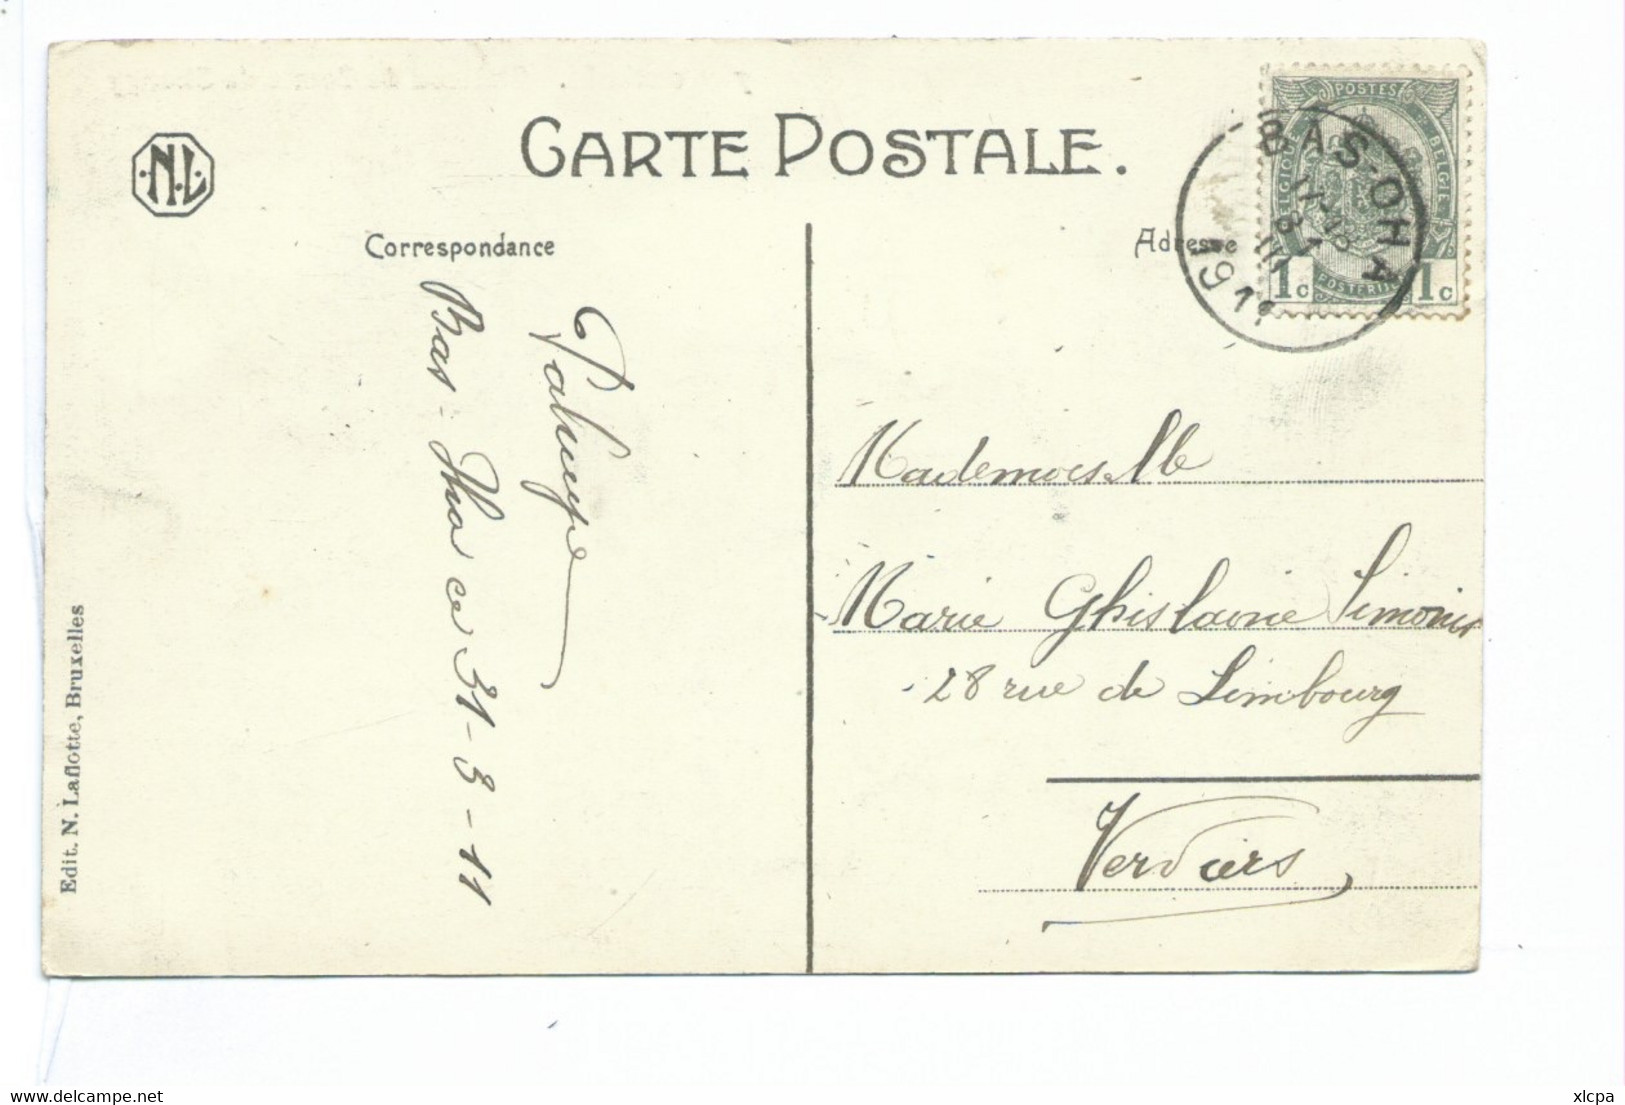 CARTE POSTALE.
·N·L·
Correspondance
Adresse
POSTES
BELGIQUE
BELGIE
POSTERIJEN
1c 1c
BAS-OHA
31 III
1911
Bas-Oha ce 31-3-11
Mademoiselle
Marie Ghislaine Simonis
28 rue de Limbourg
Verviers
Edit. N. Laflotte, Bruxelles
www.delcampe.net
xlcpa